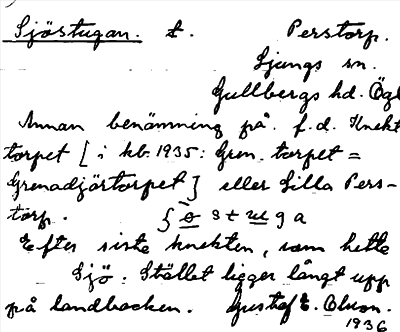 Sjöstugan. t. Perstorp.
Ljungs sn.
Gullbergs hd. Ögl
Annan benämning på f.d. Knekt
torpet [i kb. 1935: Gren. torpet =
Grenadjörtorpet] eller Lilla Pers-
torp.
Efter siste knekten, som hette
Sjö. Stället ligger långt upp
på landbacken. Gustaf E. Olson.
1936